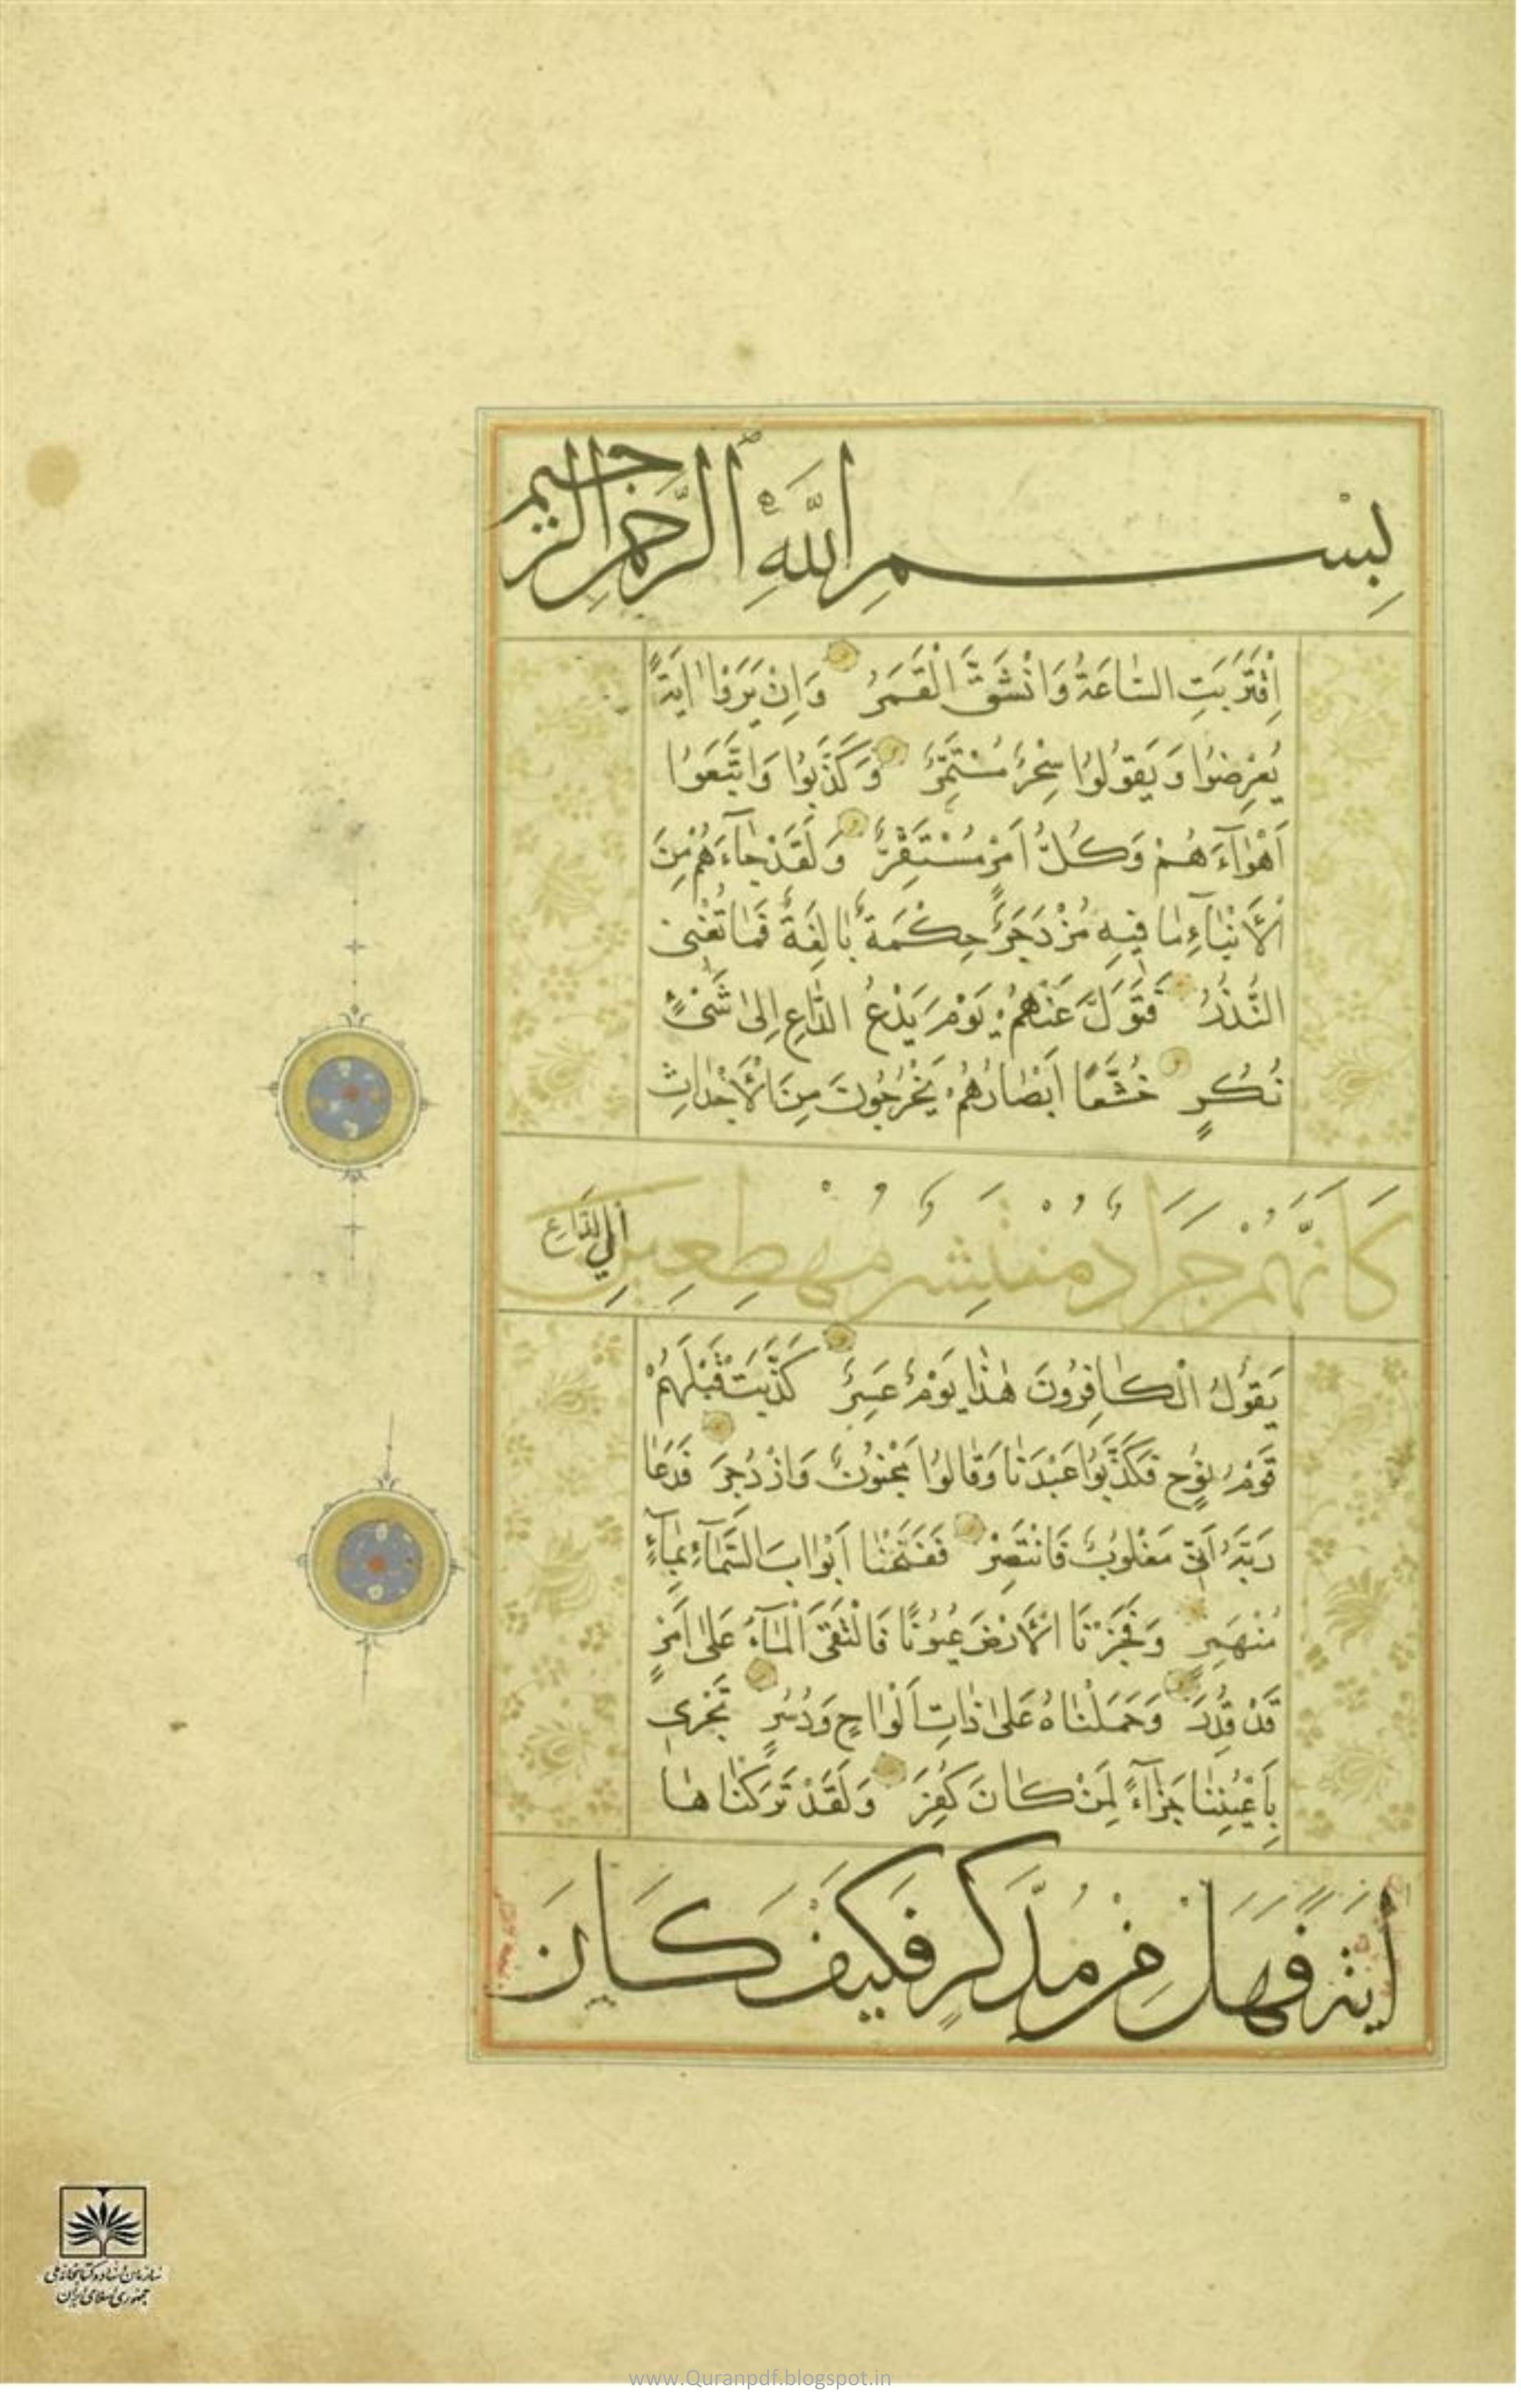 بِسْمِ اللَّهِ الرَّحْمٰنِ الرَّحِيمِ
اِقْتَرَبَتِ السَّاعَةُ وَانْشَقَّ الْقَمَرُ وَاِنْ يَرَوْا اٰيَةً
يُعْرِضُوا وَيَقُولُوا سِحْرٌ مُسْتَمِرٌّ وَكَذَّبُوا وَاتَّبَعُوا
اَهْوَآءَهُمْ وَكُلُّ اَمْرٍ مُسْتَقِرٌّ وَلَقَدْ جَآءَهُمْ مِنَ
الْاَنْبَآءِ مَا فِيهِ مُزْدَجَرٌ حِكْمَةٌ بَالِغَةٌ فَمَا تُغْنِى
النُّذُرُ فَتَوَلَّ عَنْهُمْ يَوْمَ يَدْعُ الدَّاعِ اِلٰى شَىْءٍ
نُكُرٍ خُشَّعًا اَبْصَارُهُمْ يَخْرُجُونَ مِنَ الْاَجْدَاثِ
كَاَنَّهُمْ جَرَادٌ مُنْتَشِرٌ مُهْطِعِينَ اِلَى الدَّاعِ
يَقُولُ الْكَافِرُونَ هٰذَا يَوْمٌ عَسِرٌ كَذَّبَتْ قَبْلَهُمْ
قَوْمُ نُوحٍ فَكَذَّبُوا عَبْدَنَا وَقَالُوا مَجْنُونٌ وَازْدُجِرَ فَدَعَا
رَبَّهُ اَنِّى مَغْلُوبٌ فَانْتَصِرْ فَفَتَحْنَا اَبْوَابَ السَّمَآءِ بِمَآءٍ
مُنْهَمِرٍ وَفَجَّرْنَا الْاَرْضَ عُيُونًا فَالْتَقَى الْمَآءُ عَلٰى اَمْرٍ
قَدْ قُدِرَ وَحَمَلْنَاهُ عَلٰى ذَاتِ اَلْوَاحٍ وَدُسُرٍ تَجْرِى
بِاَعْيُنِنَا جَزَآءً لِمَنْ كَانَ كُفِرَ وَلَقَدْ تَرَكْنَاهَا
اٰيَةً فَهَلْ مِنْ مُدَّكِرٍ فَكَيْفَ كَانَ
سازمان اسناد و کتابخانه ملی
جمهوری اسلامی ایران
www.Quranpdf.blogspot.in